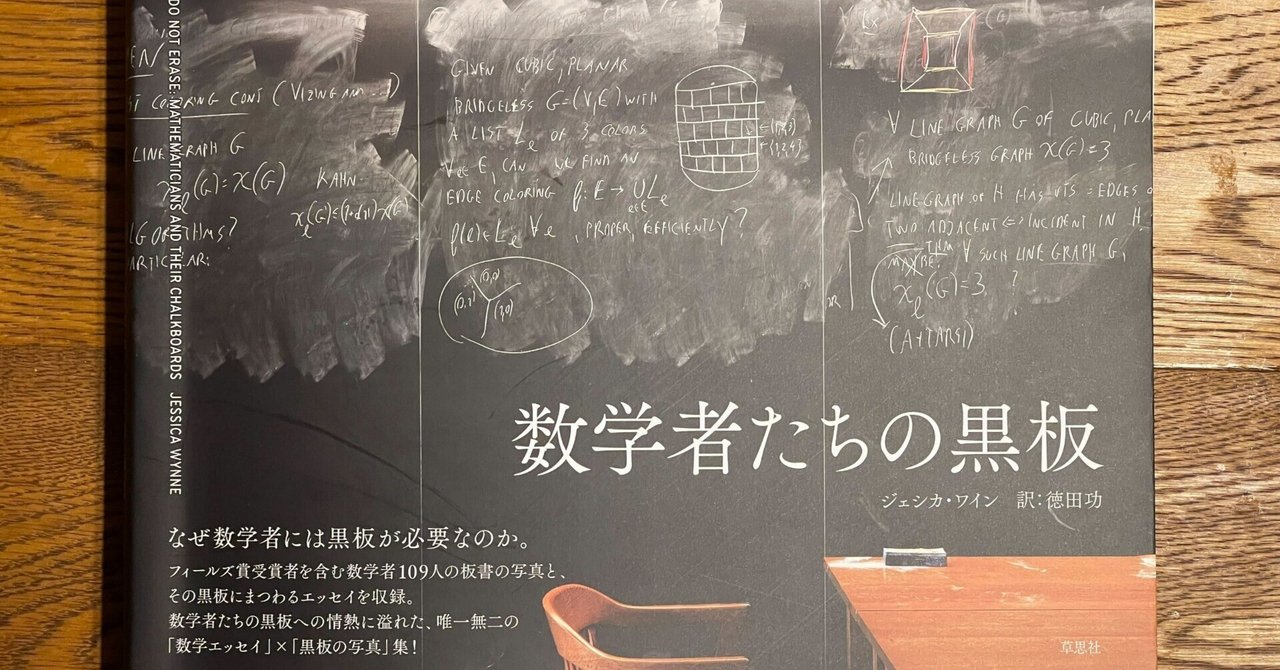 DO NOT ERASE: MATHEMATICIANS AND THEIR CHALKBOARDS JESSICA WYNNE
COLORING CONJ (VIZING AND ...)
LINE GRAPH G
χ_ℓ(G) = χ(G)
KAHN
χ_ℓ(G) ≤ (1+o(1))χ(G)
GIVEN CUBIC, PLANAR
BRIDGELESS G=(V,E) WITH
A LIST L_e OF 3 COLORS
∀e∈E, CAN WE FIND AN
EDGE COLORING f: E → ∪L_e
e∈E
f(e)∈L_e ∀e, PROPER, EFFICIENTLY?
(0,0)
∀ LINE GRAPH G OF CUBIC, PLA
BRIDGELESS GRAPH χ(G)=3
LINE GRAPH OF H HAS VTS = EDGES O
TWO ADJACENT ⇔ INCIDENT IN H.
THM
MAYBE: ∀ SUCH LINE GRAPH G,
χ_ℓ(G)=3 ?
(A+TARSI)
数学者たちの黒板
ジェシカ・ワイン 訳:徳田功
なぜ数学者には黒板が必要なのか。
フィールズ賞受賞者を含む数学者109人の板書の写真と、
その黒板にまつわるエッセイを収録。
数学者たちの黒板への情熱に溢れた、唯一無二の
「数学エッセイ」×「黒板の写真」集!
草思社